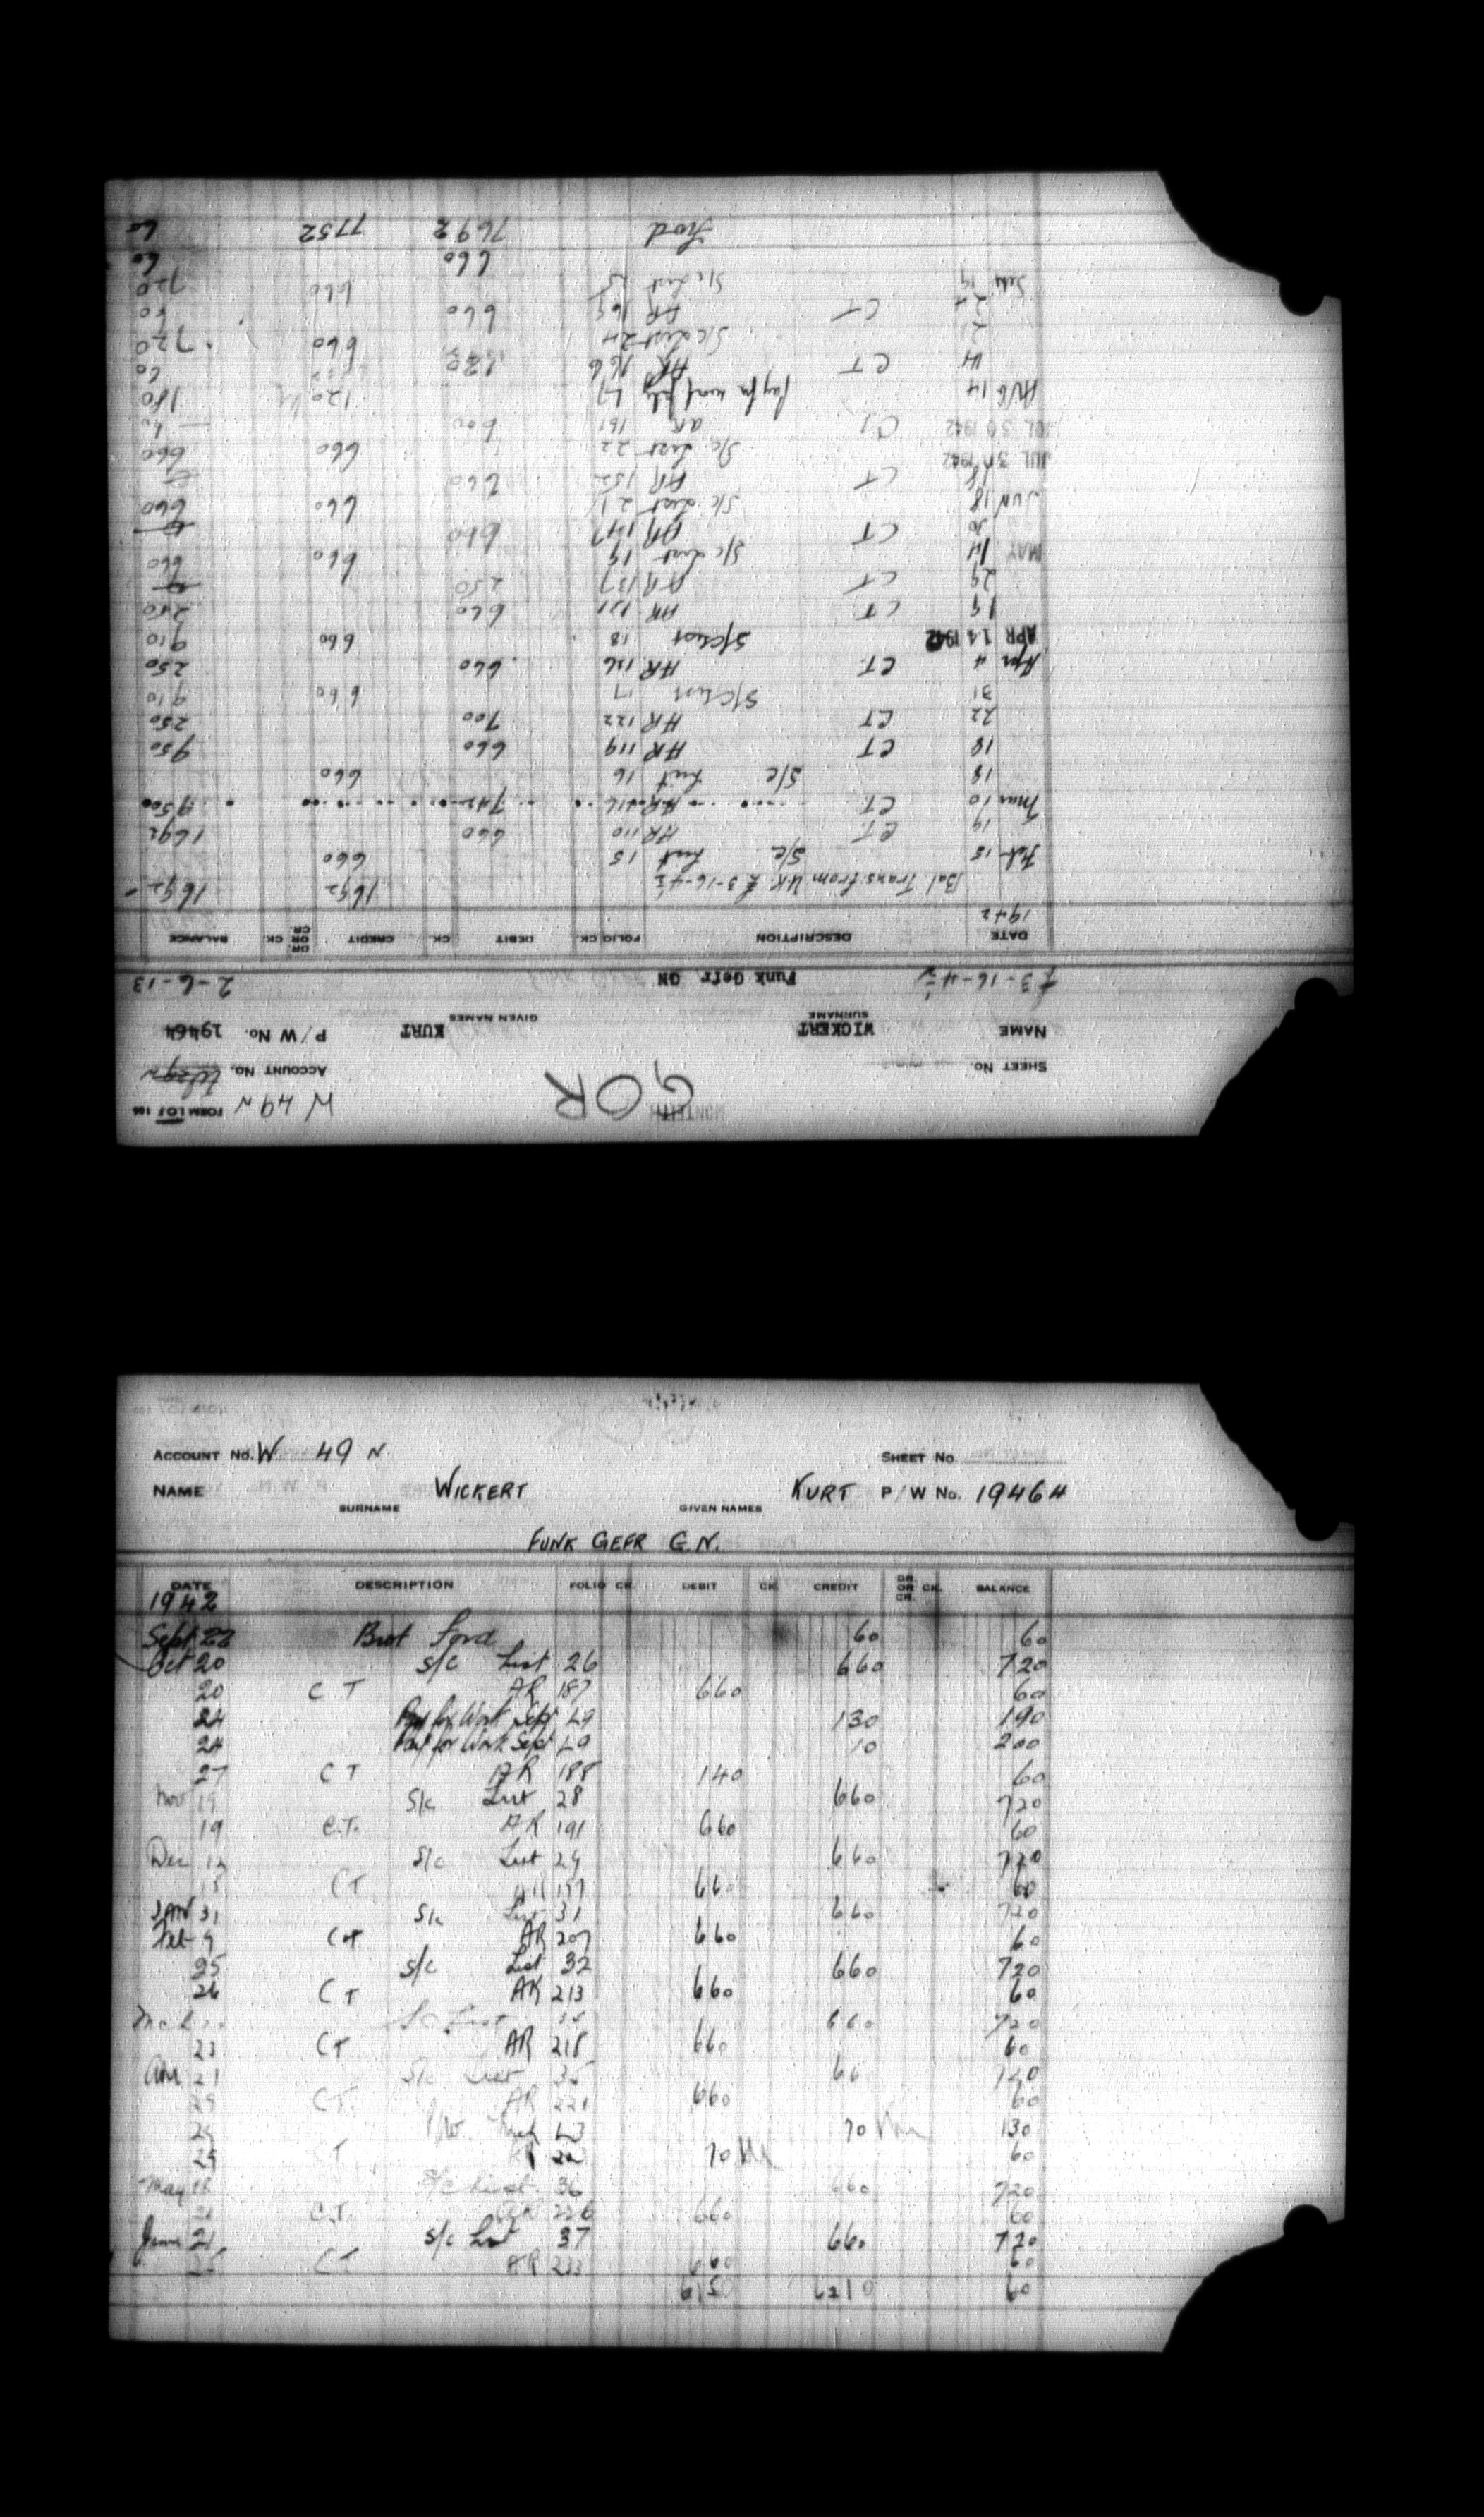 W 49 N FORM LOF 106
MONTEITH
GOR
SHEET No. ACCOUNT No.
NAME WICKERT KURT P/W No. 19464
SURNAME GIVEN NAMES
£3-16-4½ Funk Gefr GN 2-6-13
DATE DESCRIPTION FOLIO CK. DEBIT CK. CREDIT DR. OR CR. CK. BALANCE
1942
Bal Trans from U.K. £3-16-4½ 1692 1692
Feb 15 S/C List 15 660
19 C.T. AR 110 660 1692
Mar 10 C.T. AR 116 742 950
18 S/C List 16 660
18 CT AR 119 660 950
22 CT AR 122 700 250
31 S/C List 17 660 910
Apr 4 C.T. AR 126 660 250
APR 14 1942 S/C List 18 660 910
19 C.T. AR 131 660 250
29 CT AR 137 250 0
MAY 14 S/C List 19 660 660
30 CT AR 147 660 0
JUN 18 S/C List 21 660 660
CT AR 152 660
JUL 30 1942 S/C List 22 660 660
JUL 30 1942 CT AR 161 600 60
AUG 14 Pay for work July 47 120 180
14 CT AR 166 120 60
21 S/C List 24 660 720
24 CT AR 169 660 60
Sept 19 S/C List 25 660 720
660 60
Fwd 7692 7752 60
ACCOUNT No. W 49 N SHEET No.
NAME WICKERT KURT P/W No. 19464
SURNAME GIVEN NAMES
FUNK GEFR G.N.
DATE DESCRIPTION FOLIO CK. DEBIT CK. CREDIT DR. OR CR. CK. BALANCE
1942
Sept 22 Brot Ford 60 60
Oct 20 S/C List 26 660 720
20 C T AR 187 660 60
24 Pay for Work Sept 49 130 190
24 Pay for Work Sept 49 10 200
27 C T AR 188 140 60
Nov 19 S/c List 28 660 720
19 C.T. AR 191 660 60
Dec 12 S/c List 29 660 720
CT AR 197 660 60
JAN 31 S/c List 31 660 720
Feb 9 CT AR 207 660 60
25 S/c List 32 660 720
26 CT AR 213 660 60
Mch S/C List 660 720
23 CT AR 218 660 60
Apr 21 S/c List 35 66 720
29 CT. AR 221 660 60
70 130
29 T AR 70 60
May 18 S/c List 36 660 720
C.T. AR 226 660 60
June 21 S/c List 37 660 720
CT AR 233 660 60
6150 6210 60